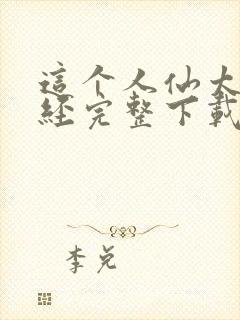 這个人仙太
經完整下載
李兌